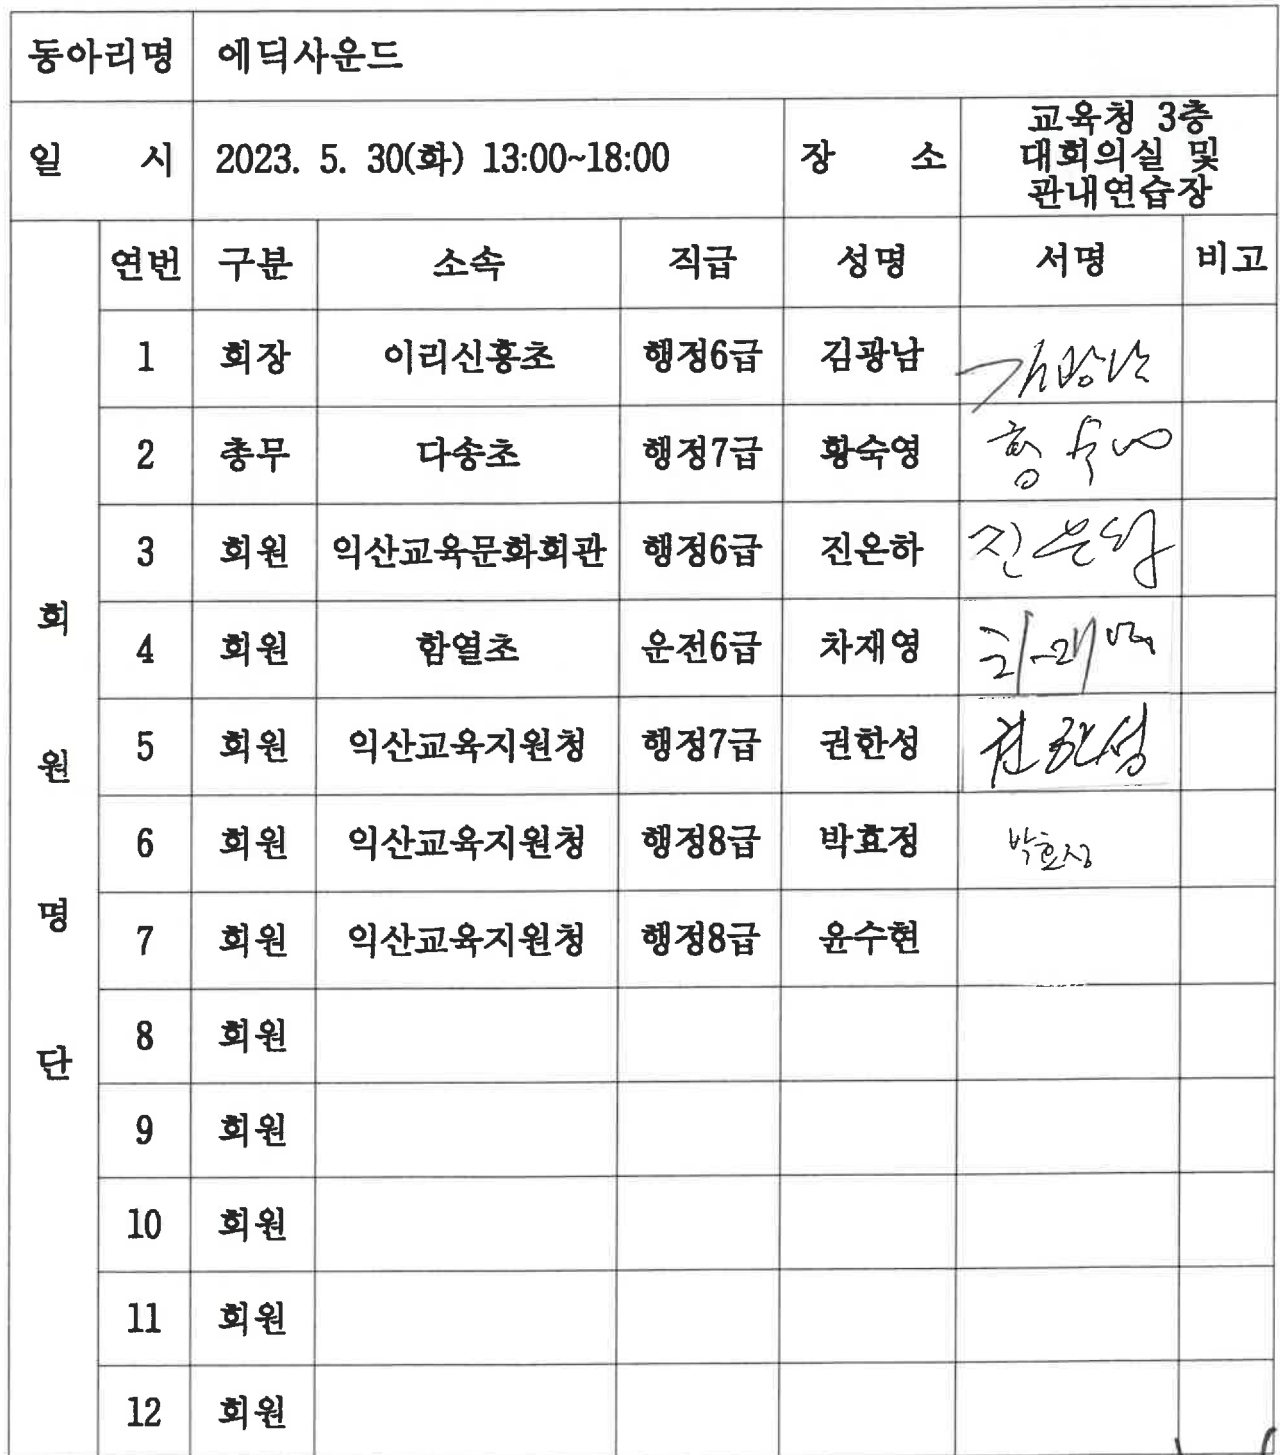 동아리명 에딕사운드
일 시 2023. 5. 30(화) 13:00~18:00 장 소 교육청 3층
대회의실 및
관내연습장
회원명단
연번 구분 소속 직급 성명 서명 비고
1 회장 이리신흥초 행정6급 김광남 김광남
2 총무 다송초 행정7급 황숙영 황숙영
3 회원 익산교육문화회관 행정6급 진온하 진온하
4 회원 함열초 운전6급 차재영 차재영
5 회원 익산교육지원청 행정7급 권한성 권한성
6 회원 익산교육지원청 행정8급 박효정 박효정
7 회원 익산교육지원청 행정8급 윤수현
8 회원
9 회원
10 회원
11 회원
12 회원